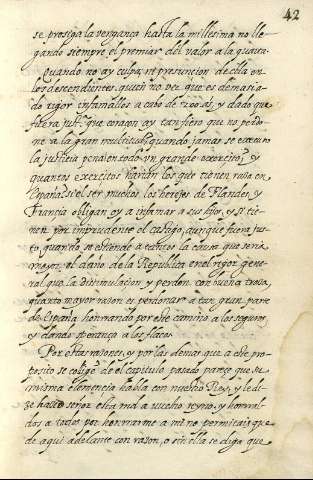 42
se prosiga la vengança hasta la millesima no lle
gando siempre el premiar del valor a la quarta.
Quando no ay culpa, ni presuncion de ella en
los descendientes, quien no vee que es demasia
do rigor infamallos a cabo de 200 as. y dado que
fuera just.ª que coraçon ay tan fiero que no perdo
ne a la gran multitud, quando jamas se executo
la justicia pena en todo un grande exercito, y
quantos exercitos harian los que tienen raça en
España. si el ser muchos los herejes de Flandes, y
Francia obligan oy a infamar a sus hijos, y se tie
nen por imprudente el castigo, aunque fuera jus
to, quando se estiende a tantos la causa que seria
mayor el daño de la Republica en el rigor gene
ral que la disimulacion y perdon con buena traça,
quanto mayor razon es perdonar a tan gran parte
de España honrrando por este camino a los seguros
y dando esperança a los flacos
Por estas razones, y por las demas que a este pro
posito se colige del capitulo pasado pareçe que la
misma clemencia habla con nuestro Rey, y le di
ze hazed señor esta md a vuestro reyno, y honrral
dos a todos por honrrarme a mi no permitais que
de aqui adelante con razon, o sin ella se diga que